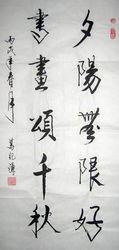 夕陽無限好
書畫頌千秋
丙戌年春月